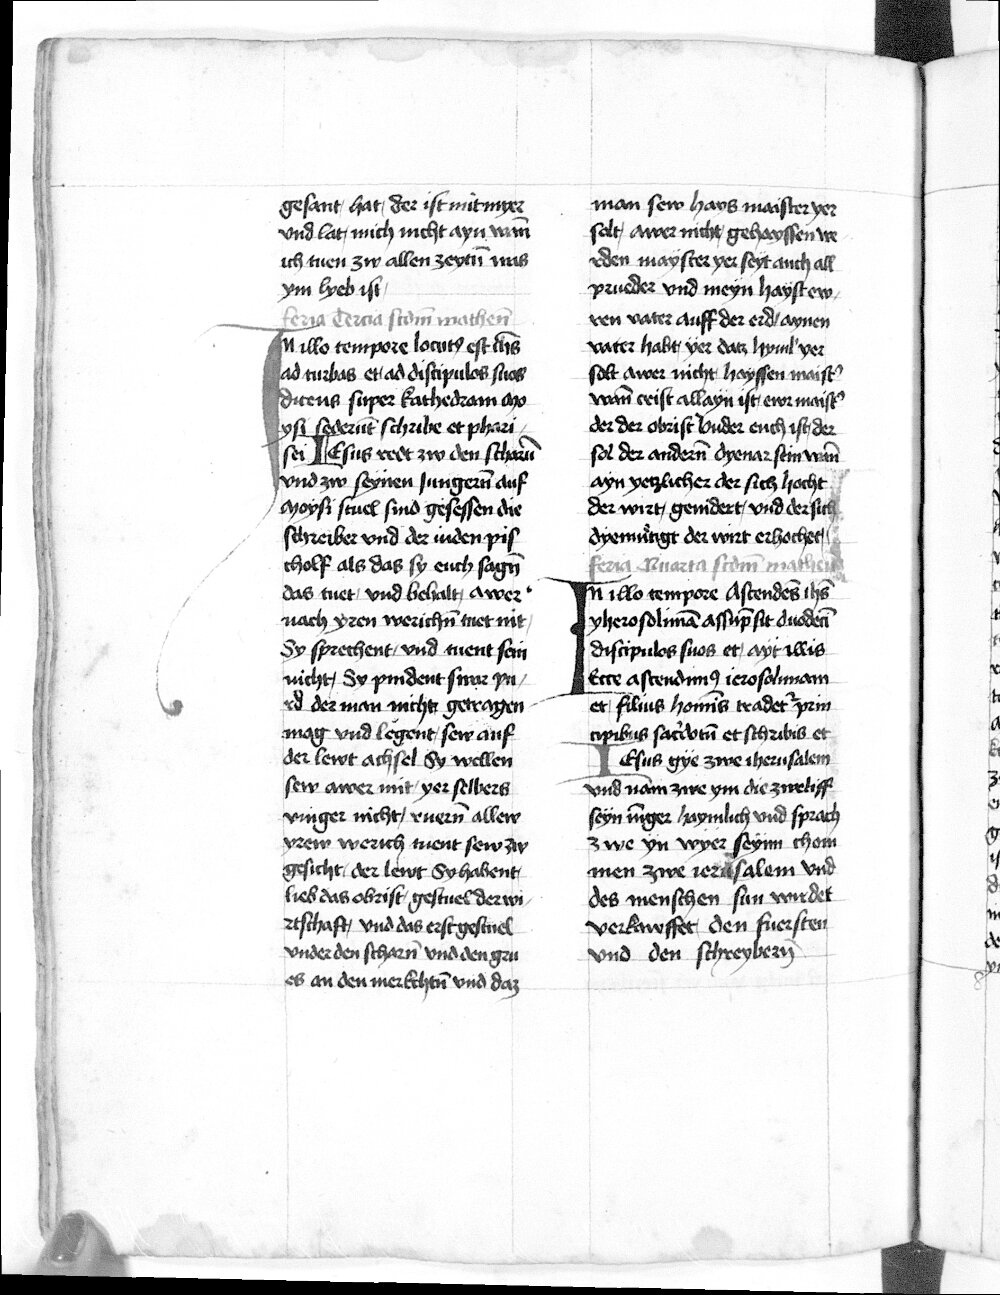 gesant hat der ist mit myer
vnd lat mich nicht ayn wan̄
ich tuen zw allen zeytn̄ was
ym lyeb ist
feria Tercia scdm̄ matheū
In illo tempore locutꝰ est ihs̄
ad turbas et ad discipulos suos
dicens super kathedram mo
ysi sederūt schribe et phari
sei IEsus redt zw den scharn̄
vnd zw seynen Jungern̄ auf
Moysi stuel sind gesessen die
schreiber vnd der iuden pis
cholf als das sy euch sagn̄
das tuet vnd behalt awer
nach yren werichn̄ tuet nit
Sy sprechent vnd tuent sein
nicht Sy pindent swar pu
rd der man nicht getragen
mag vnd legent sew auf
der lewt achsel Sy wellen
sew awer mit yer selbers
vinger nicht ruern̄ allew
yrew werich tuent sew zw
gesicht der lewt Sy habent
lieb das obrist gestuel der wi
rtschaft vnd das erst gestuel
vnder den scharn̄ vnd den gru
es an den merkchtn̄ vnd daz
man sew hays maister yer
solt awer nicht gehayssen we
rden mayster yer seyt auch all
prueder vnd meyn hayst ew
ren vater auff der erd aynen
vater habt yer datz hyml yer
solt awer nicht hayssen maist
wan̄ crist allayn ist ewr maist
der der obrist vnder euch ist der
sol der andern̄ dyenar sein wan̄
ayn yetzlicher der sich hocht
der wirt genidert vnd der sich
dyemutigt der wirt erhochet
feria Quarta scdm̄ matheū
In illo tempore Ascendens ihs̄
yherosolimā assūpsit duodecī
discipulos suos et ayt illis
Ecce ascendimꝰ ierosolimam
et filius homīs tradet prin
cipibus sacerdotū et schribis et
IEsus gye zwe iherusalem
vnd nam zwe ym die zweliff
seyn iūnger haymlich vnd sprach
zwe yn wyer seyinn chom
men zwe ierusalem vnd
des menschen sun wirdet
verkawffet den fuersten
vnd den schreybern̄